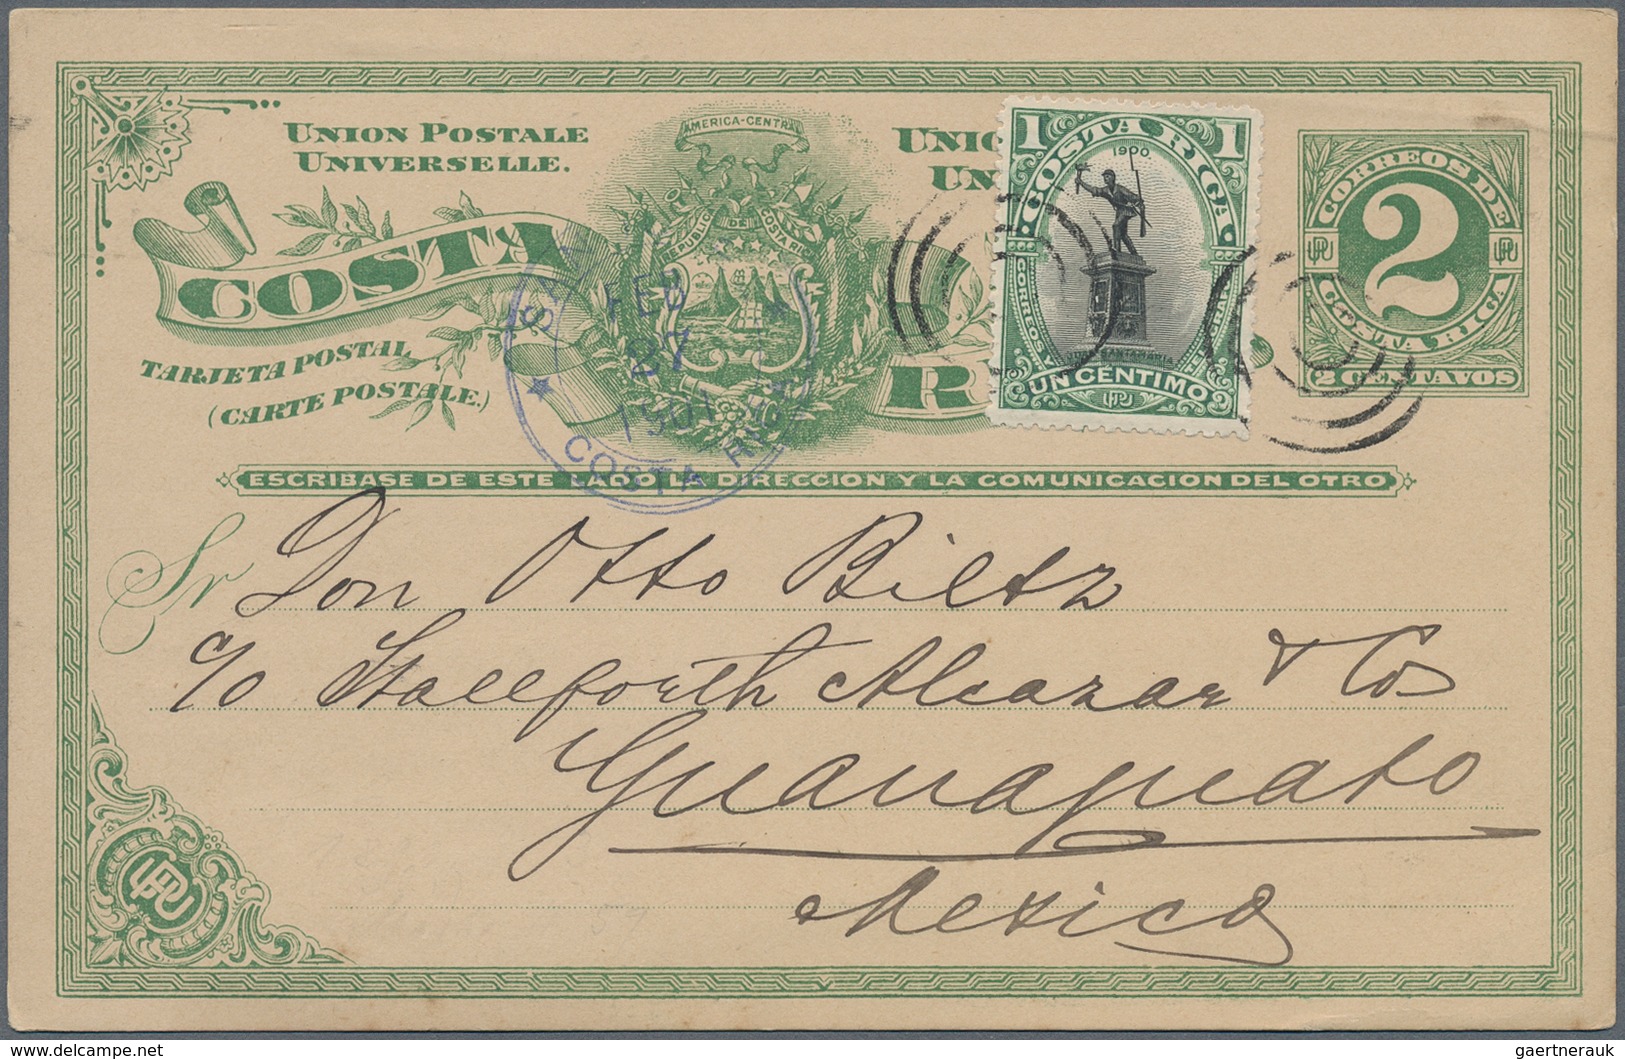 UNION POSTALE
UNIVERSELLE.
AMERICA-CENTRAL
REPUBLICA DE COSTA RICA
COSTA
TARJETA POSTAL
(CARTE POSTALE.)
1 COSTA RICA 1
1900
CORREOS Y
JUAN SANTAMARIA
UN CENTIMO
UPU
CORREOS DE
2
COSTA RICA
2 CENTAVOS
FEB
27
1901
COSTA RICA
ESCRIBASE DE ESTE LADO LA DIRECCION Y LA COMUNICACION DEL OTRO
Sr Don Otto Biltz
c/o Stallforth Alcazar & Co
Guanajuato
Mexico
59
delcampe.net
gaertnerauk